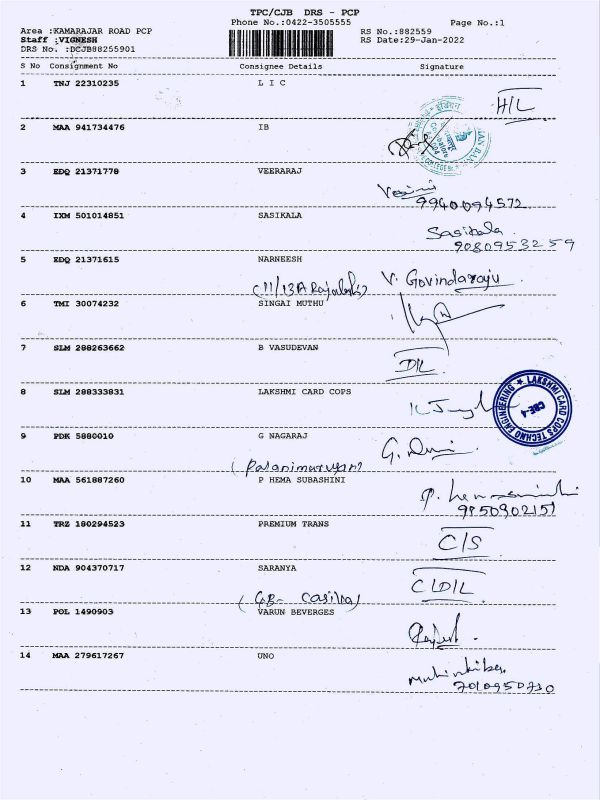 TPC/CJB DRS - PCP
Phone No.:0422-3505555 Page No.:1
Area :KAMARAJAR ROAD PCP RS No.:882559
Staff :VIGNESH RS Date:29-Jan-2022
DRS No. :DCJB88255901
S No Consignment No Consignee Details Signature
1 TNJ 22310235 L I C H/L
2 MAA 941734476 IB
3 EDQ 21371778 VEERARAJ
9940094572
4 IXM 501014851 SASIKALA Sasikala
9080953259
5 EDQ 21371615 NARNEESH V. Govindaraju
6 TMI 30074232 SINGAI MUTHU
7 SLM 288263662 B VASUDEVAN D/L
8 SLM 288333831 LAKSHMI CARD COPS
LAKSHMI CARD COPS TECHNO ENGINEERING
CBE-4
9 PDK 5880010 G NAGARAJ
(Palanimurugan)
10 MAA 561887260 P HEMA SUBASHINI
9850902151
11 TRZ 180294523 PREMIUM TRANS C/S
12 NDA 904370717 SARANYA C/D/L
13 POL 1490903 VARUN BEVERGES
14 MAA 279617267 UNO
7010950730